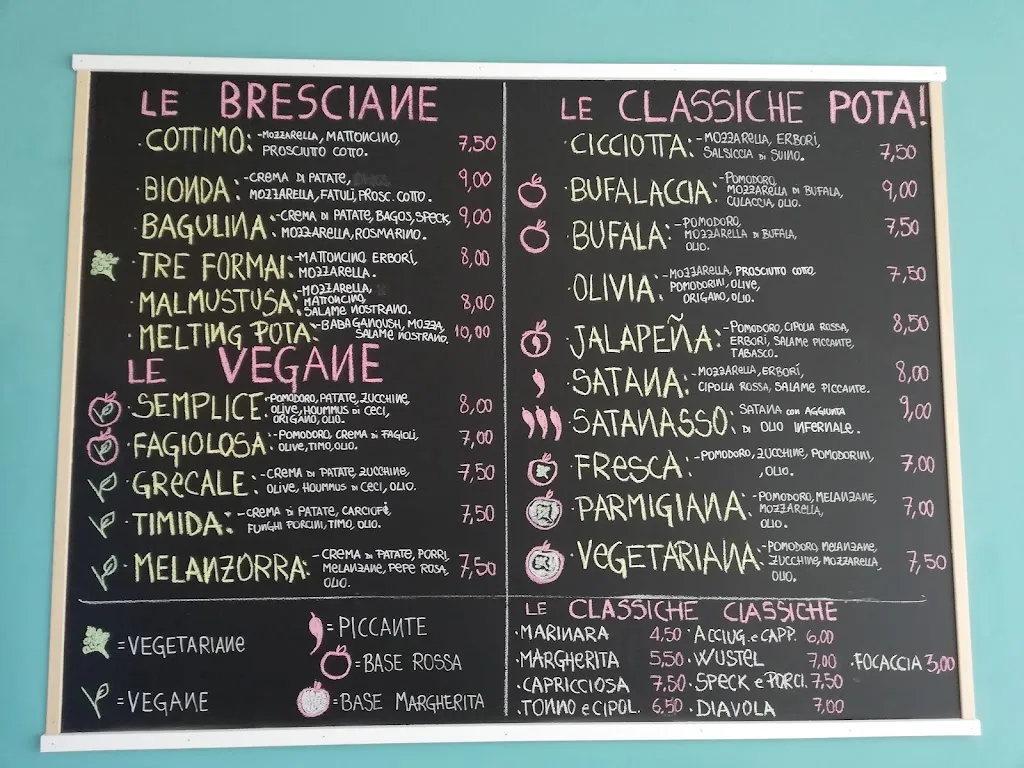 LE BRESCIANE
·COTTIMO: -MOZZARELLA, MATTONCINO,
PROSCIUTO COTTO. 7,50
·BIONDA: -CREMA DI PATATE,
MOZZARELLA, FATULÌ, PROSC. COTTO. 9,00
·BAGULINA: -CREMA DI PATATE, BAGOS, SPECK,
MOZZARELLA, ROSMARINO. 9,00
·TRE FORMAI: -MATTONCINO, ERBORÍ,
MOZZARELLA. 8,00
·MALMUSTUSA: -MOZZARELLA,
MATTONCINO,
SALAME NOSTRANO. 8,00
·MELTING POTA: -BABAGANOUSH, MOZZA,
SALAME NOSTRANO. 10,00
LE VEGANE
·SEMPLICE: -POMODORO, PATATE, ZUCCHINE,
OLIVE, HOUMMUS DI CECI,
ORIGANO, OLIO. 8,00
·FAGIOLOSA: -POMODORO, CREMA DI FAGIOLI,
OLIVE, TIMO, OLIO. 7,00
·GRECALE: -CREMA DI PATATE, ZUCCHINE,
OLIVE, HOUMMUS DI CECI, OLIO. 7,50
·TIMIDA: -CREMA DI PATATE, CARCIOFI,
FUNGHI PORCINI, TIMO, OLIO. 7,50
·MELANZORRA: -CREMA DI PATATE, PORRI,
MELANZANE, PEPE ROSA,
OLIO. 7,50
=VEGETARIANE
=VEGANE
=PICCANTE
=BASE ROSSA
=BASE MARGHERITA
LE CLASSICHE POTA!
·CICCIOTTA: -MOZZARELLA, ERBORÍ,
SALSICCIA DI SUINO. 7,50
·BUFALACCIA: -POMODORO,
MOZZARELLA DI BUFALA,
CULACCIA, OLIO. 9,00
·BUFALA: -POMODORO,
MOZZARELLA DI BUFALA,
OLIO. 7,50
OLIVIA: -MOZZARELLA, PROSCIUTO COTTO,
POMODORINI, OLIVE,
ORIGANO, OLIO. 7,50
·JALAPEÑA: -POMODORO, CIPOLLA ROSSA,
ERBORÍ, SALAME PICCANTE,
TABASCO. 8,50
·SATANA: -MOZZARELLA, ERBORÍ,
CIPOLLA ROSSA, SALAME PICCANTE. 8,00
·SATANASSO: SATANA CON AGGIUNTA
DI OLIO INFERNALE. 9,00
·FRESCA: -POMODORO, ZUCCHINE, POMODORINI,
,OLIO. 7,00
·PARMIGIANA: -POMODORO, MELANZANE,
MOZZARELLA,
OLIO. 7,00
·VEGETARIANA: -POMODORO, MELANZANE,
ZUCCHINE, MOZZARELLA,
OLIO. 7,50
LE CLASSICHE CLASSICHE
·MARINARA 4,50 ·ACCIUG. e CAPP. 6,00
·MARGHERITA 5,50 ·WUSTEL 7,00 ·FOCACCIA 3,00
·CAPRICCIOSA 7,50 ·SPECK e PORCI. 7,50
·TONNO e CIPOL. 6,50 ·DIAVOLA 7,00